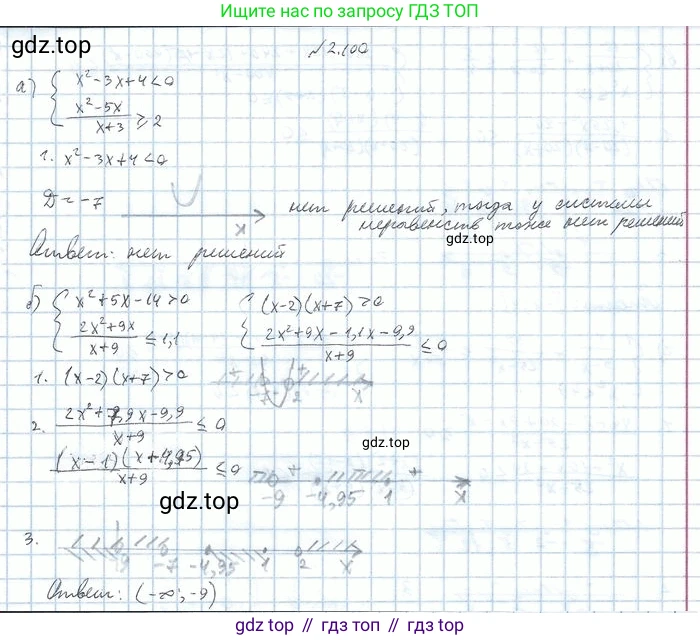 Ищите нас по запросу ГДЗ ТОП
gdz.top
№ 2.100
а) { x² - 3x + 4 < 0
x² - 5x / x + 3 ≥ 2
1. x² - 3x + 4 < 0
D = -7
x
нет решений, тогда у системы
неравенств тоже нет решений
gdz.top
Ответ: нет решений
б) { x² + 5x - 14 > 0
2x² + 9x / x + 9 ≤ 1,1
{ (x - 2)(x + 7) > 0
2x² + 9x - 1,1x - 9,9 / x + 9 ≤ 0
1. (x - 2)(x + 7) > 0
+ +
-7 2 x
2. 2x² + 7,9x - 9,9 / x + 9 ≤ 0
gdz.top
(x - 1)(x + 4,95) / x + 9 ≤ 0
+ +
-9 -4,95 1 x
gdz.top
3.
-9 -7 -4,95 1 2 x
Ответ: (-∞; -9)
gdz.top // гдз.топ // gdz.top